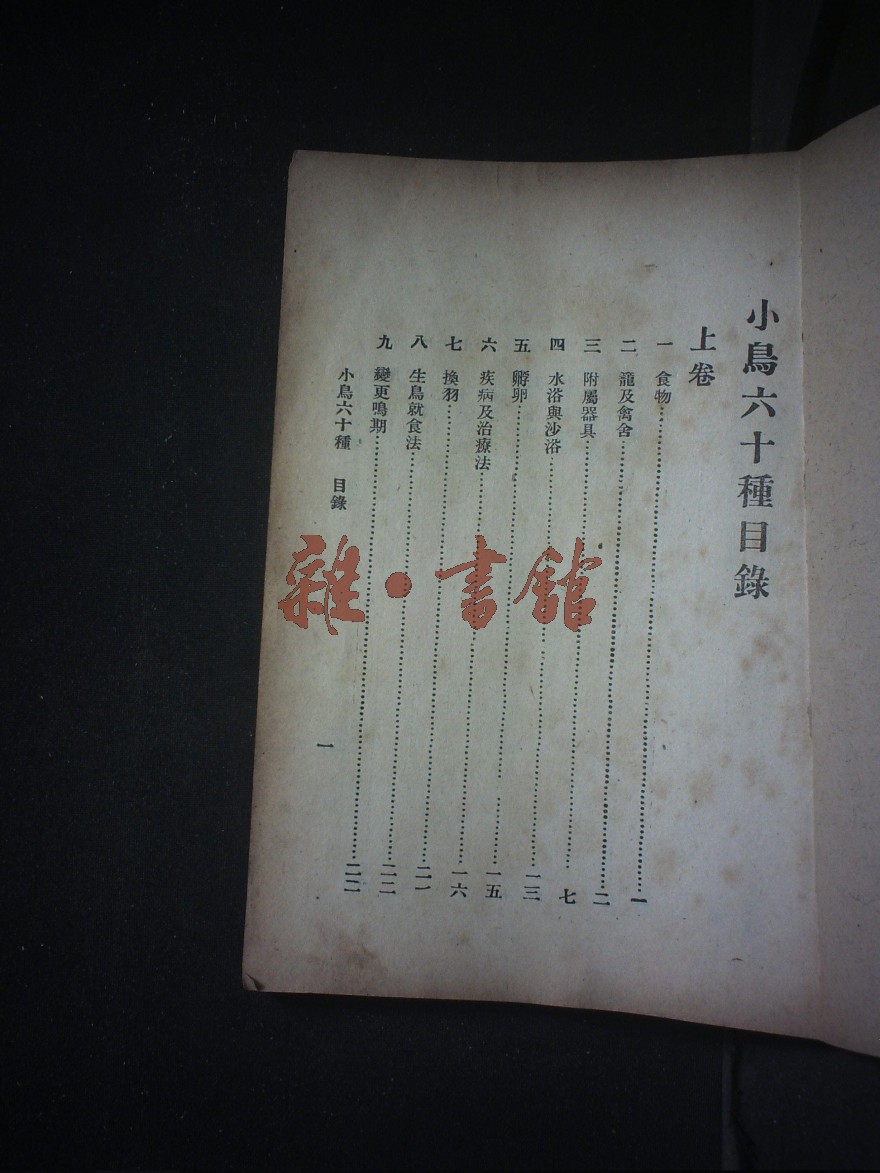 小鳥六十種目錄
上卷
一 食物……一
二 籠及禽舍……二
三 附屬器具……七
四 水浴與沙浴……一三
五 孵卵……一五
六 疾病及治療法……一六
七 換羽……二一
八 生鳥就食法……二二
九 變更鳴期……二二
小鳥六十種 目錄
一
雜·書館